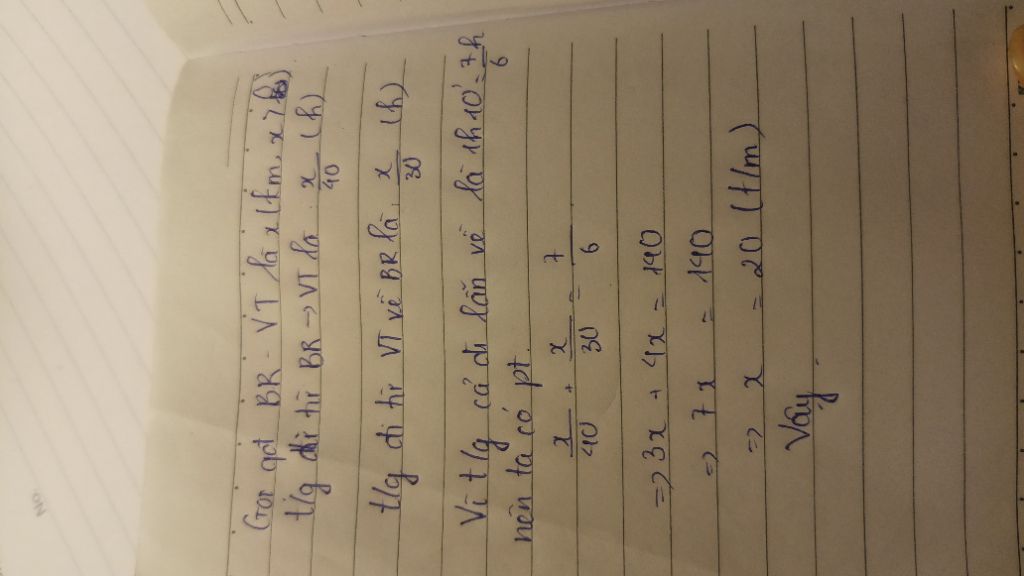 Gọi qđ BR - VT là x (km, x > 0)
tlg đi từ BR → VT là x/40 (h)
tlg đi từ VT về BR là x/30 (h)
Vì tlg cả đi lẫn về là 1h10' = 7/6 h
nên ta có pt
x/40 + x/30 = 7/6
=> 3x + 4x = 140
=> 7x = 140
=> x = 20 (t/m)
Vậy